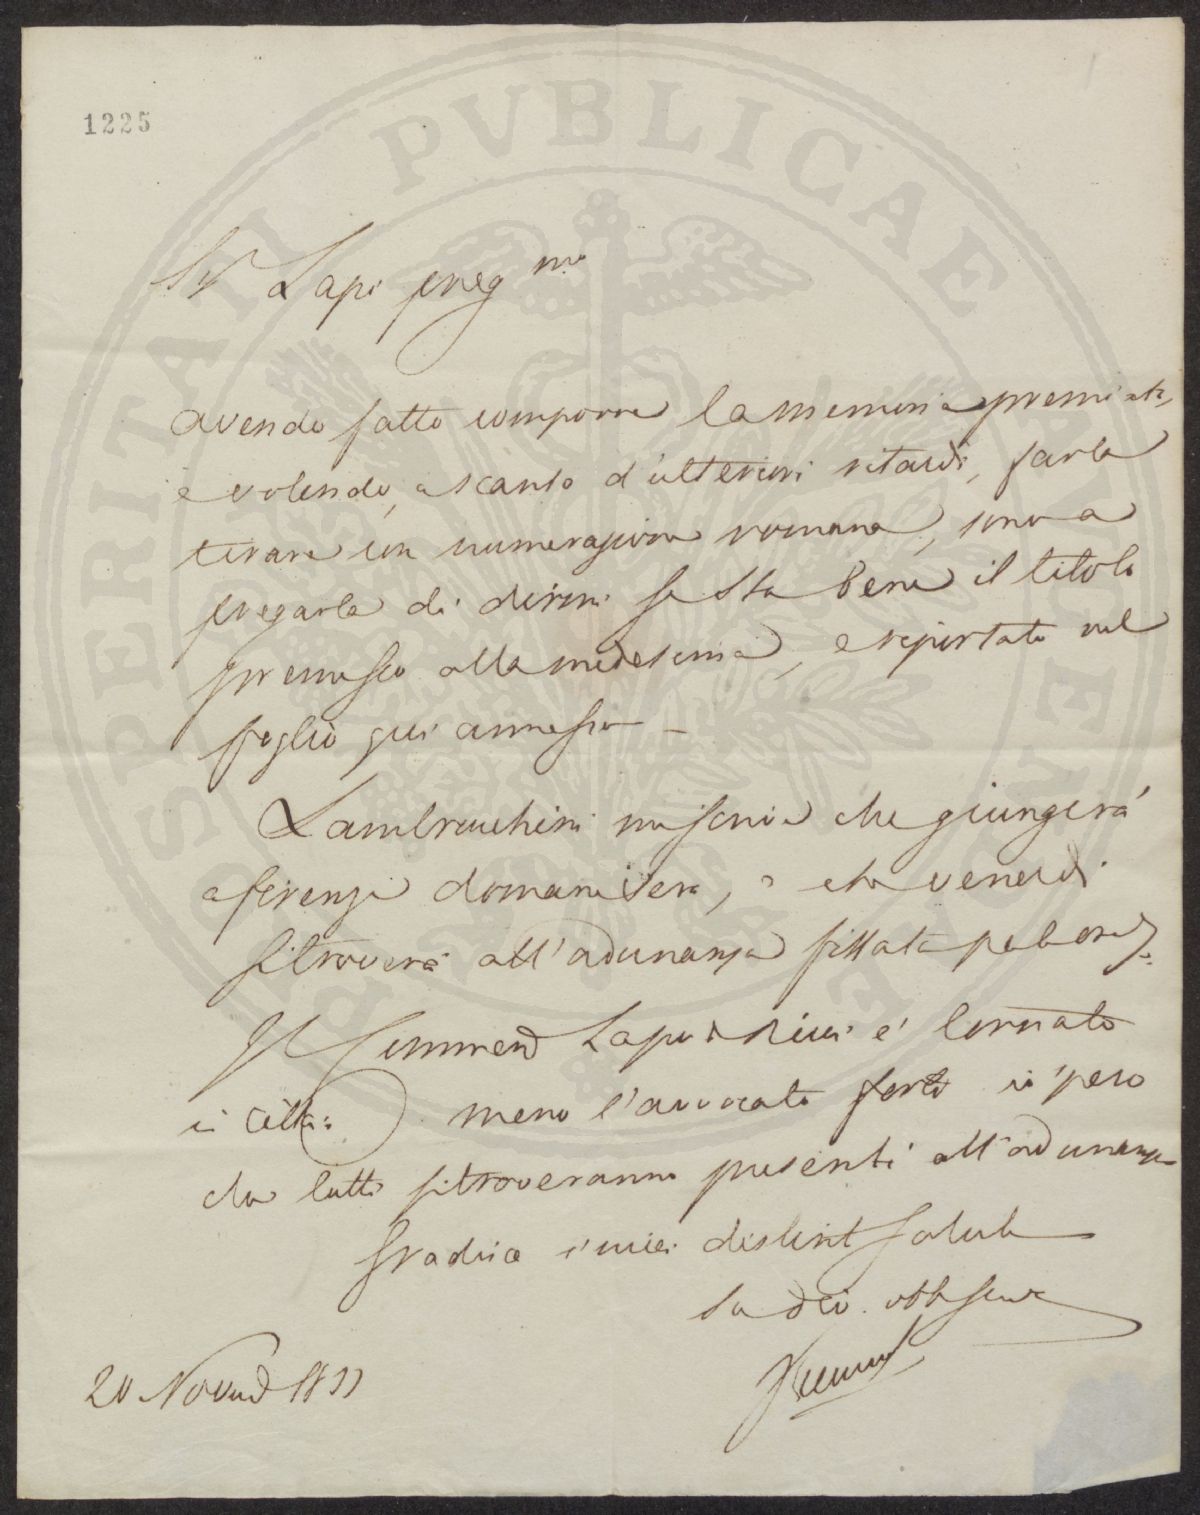 1225
Sr Lapi preg mo
avendo fatto comporre la memoria premiata,
e volendo, a scanso d'ulteriori ritardi, farla
tirare con numerazione romana, sono a
pregarla di dirmi se sta bene il titolo
premesso alla medesima, e riportato nel
foglio qui annesso –
Lambruschini mi scrive che giungerà
a Firenze domani sera, e che venerdì
si troverà all'adunanza fissata per le ore 7.
Il Commend Lapo de Ricci è tornato
in città; meno l'avvocato forti io spero
che tutti si troveranno presenti all'adunanza
Gradisca i miei distint saluti
Suo dev. obb serve
20 Novemb 1833
PERITATI PVBLICAE